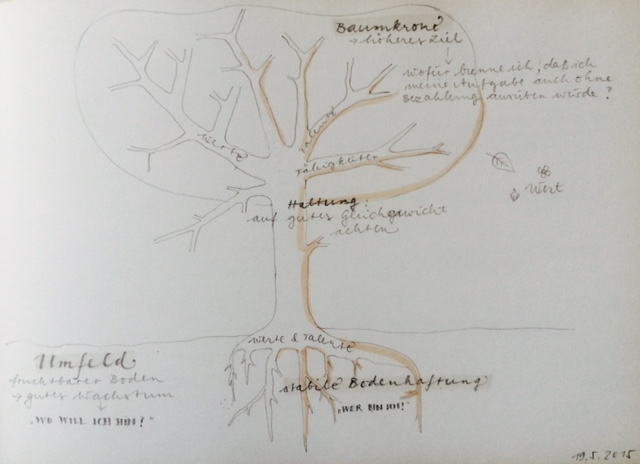 Baumkrone
→ höheres Ziel
wofür brenne ich, daß ich
meine Aufgabe auch ohne
Bezahlung ausüben würde?
Talente
Werte
Fähigkeiten
Wert
Haltung:
auf gutes Gleichgewicht
achten
Werte & Talente
Umfeld
fruchtbarer Boden
→ gutes Wachstum
"WO WILL ICH HIN?"
stabile Bodenhaftung
"WER BIN ICH?"
19.5.2015